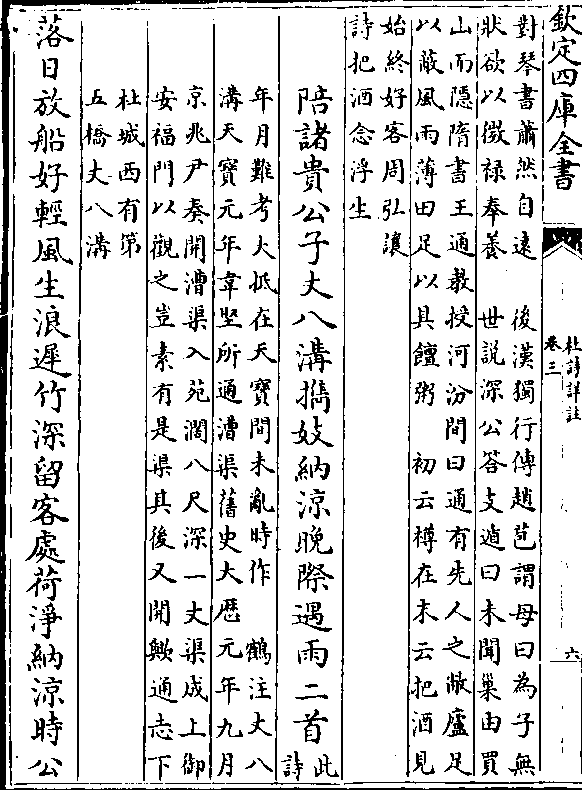 欽定四庫全書
杜詩詳註
卷三
六
對琴書蕭然自遠　後漢獨行傳趙苞謂母曰為子無
狀欲以微禄奉養　世說深公答支遁曰未聞巢由買
山而隱隋書王通教授河汾間曰通有先人之敝廬足
以蔽風雨薄田足以具饘粥　初云樽在末云把酒見
始終好客周弘讓
詩把酒念浮生
陪諸貴公子丈八溝攜妓納涼晚際遇雨二首
此
詩
年月難考大抵在天寶間未亂時作　鶴注丈八
溝天寶元年韋堅所通漕渠舊史大厯元年九月
京兆尹奏開漕渠入苑濶八尺深一丈渠成上御
安福門以觀之豈素有是渠其後又開歟通志下
杜城西有第
五橋丈八溝
落日放船好輕風生浪遲竹深留客處荷淨納涼時公